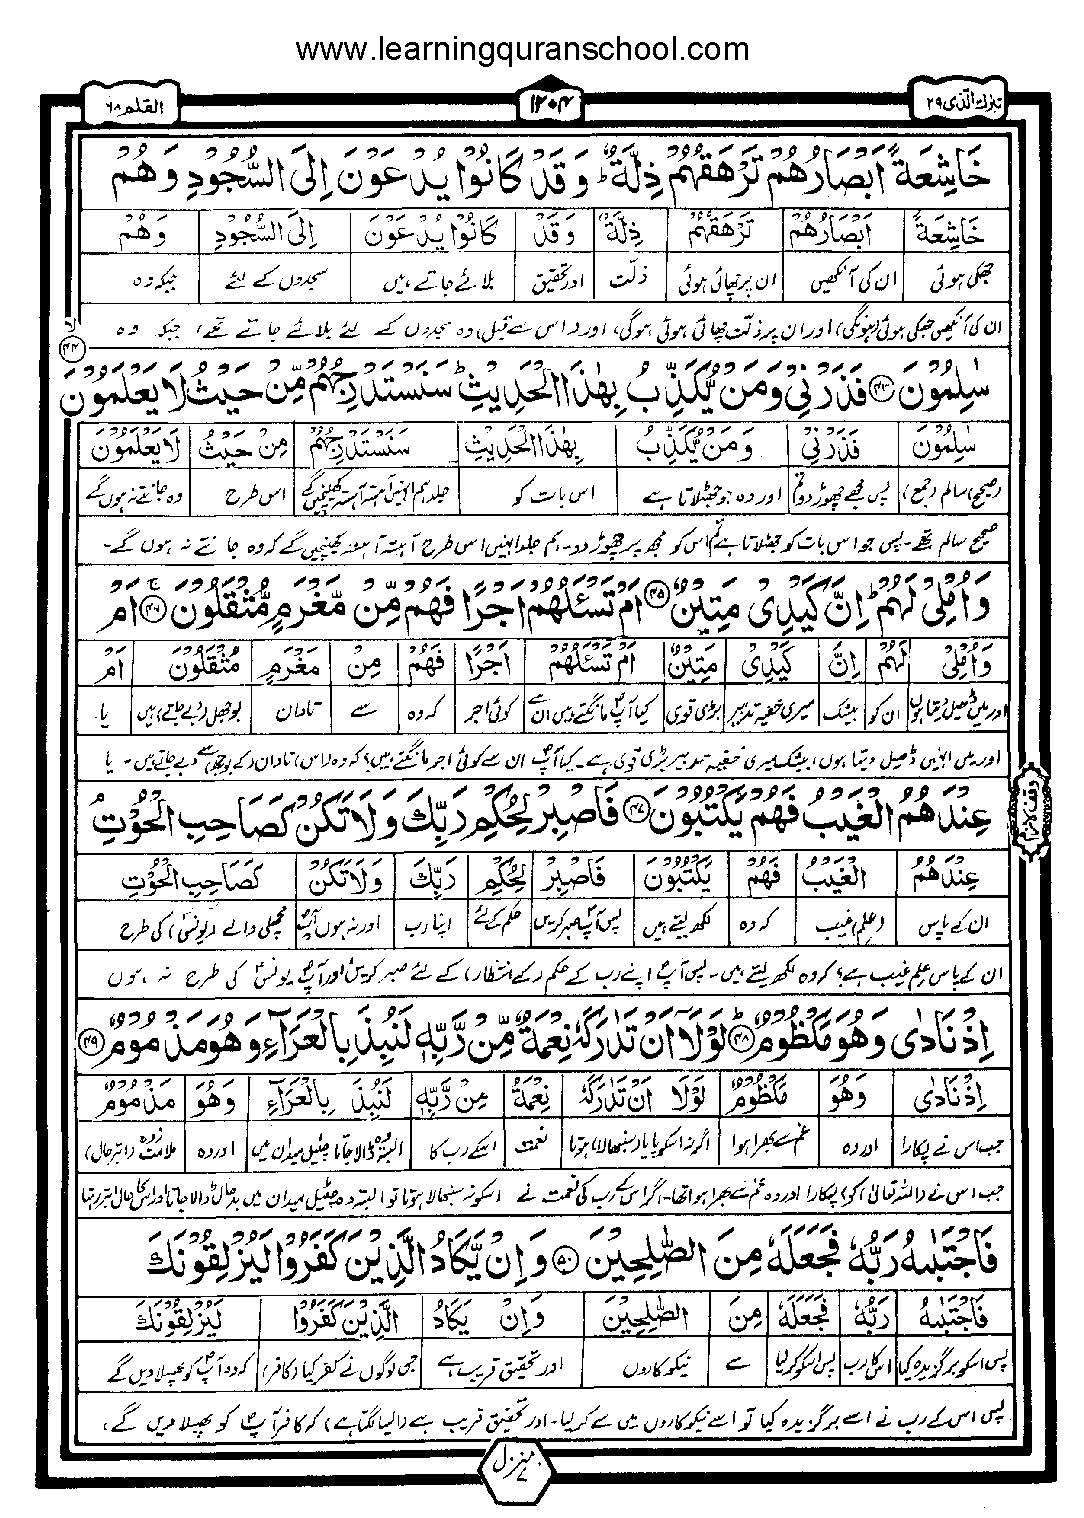 www.learningquranschool.com
تبٰرك الّذی ۲۹
۱۲۰۴
القلم ۶۸
خَاشِعَةً اَبْصَارُهُمْ تَرْهَقُهُمْ ذِلَّةٌ ؕ وَ قَدْ كَانُوْا يُدْعَوْنَ اِلَى السُّجُوْدِ وَ هُمْ
خَاشِعَةً اَبْصَارُهُمْ تَرْهَقُهُمْ ذِلَّةٌ وَ قَدْ كَانُوْا يُدْعَوْنَ اِلَى السُّجُوْدِ وَ هُمْ
جھکی ہوئی ان کی آنکھیں ان پر چھائی ہوئی ذلّت اور تحقیق بلائے جاتے ہیں سجدوں کے لئے جبکہ وہ
ان کی آنکھیں جھکی ہوئی (ہونگی) اور ان پر ذلت چھائی ہوئی ہوگی، اور (اس سے قبل) وہ سجدوں کے لئے بلائے جاتے تھے، جبکہ وہ
سٰلِمُوْنَ ۴۳ فَذَرْنِيْ وَ مَنْ يُّكَذِّبُ بِهٰذَا الْحَدِيْثِ ؕ سَنَسْتَدْرِجُهُمْ مِّنْ حَيْثُ لَا يَعْلَمُوْنَ
۴۴
سٰلِمُوْنَ فَذَرْنِيْ وَ مَنْ يُّكَذِّبُ بِهٰذَا الْحَدِيْثِ سَنَسْتَدْرِجُهُمْ مِنْ حَيْثُ لَا يَعْلَمُوْنَ
(صحیح) سالم (جمع) پس مجھے چھوڑ دو تم اور وہ جو جھٹلاتا ہے اس بات کو جلد ہم انہیں آہستہ آہستہ کھینچیں گے اس طرح وہ جانتے نہ ہوں گے
صحیح سالم تھے۔ پس جو اس بات کو جھٹلاتا ہے تم اس کو مجھ پر چھوڑ دو۔ ہم جلد انہیں اس طرح آہستہ آہستہ کھینچیں گے کہ وہ جانتے نہ ہوں گے۔
وَ اُمْلِيْ لَهُمْ ؕ اِنَّ كَيْدِيْ مَتِيْنٌ ۴۵ اَمْ تَسْـَٔلُهُمْ اَجْرًا فَهُمْ مِّنْ مَّغْرَمٍ مُّثْقَلُوْنَ ۴۶ اَمْ
وَ اُمْلِيْ لَهُمْ اِنَّ كَيْدِيْ مَتِيْنٌ اَمْ تَسْـَٔلُهُمْ اَجْرًا فَهُمْ مِنْ مَغْرَمٍ مُثْقَلُوْنَ اَمْ
اور میں ڈھیل دیتا ہوں ان کو بیشک میری خفیہ تدبیر بڑی قوی کیا آپؐ مانگتے ہیں ان سے کوئی اجر کہ وہ سے تاوان بوجھل (دبے جاتے) ہیں یا
اور میں انہیں ڈھیل دیتا ہوں، بیشک میری خفیہ تدبیر بڑی قوی ہے۔ کیا آپؐ ان سے کوئی اجر مانگتے ہیں؟ کہ وہ (اس) تاوان (کے بوجھ) سے دبے جاتے ہیں۔ یا
عِنْدَهُمُ الْغَيْبُ فَهُمْ يَكْتُبُوْنَ ۴۷ فَاصْبِرْ لِحُكْمِ رَبِّكَ وَ لَا تَكُنْ كَصَاحِبِ الْحُوْتِ ۘ
عِنْدَهُمُ الْغَيْبُ فَهُمْ يَكْتُبُوْنَ فَاصْبِرْ لِحُكْمِ رَبِّكَ وَ لَا تَكُنْ كَصَاحِبِ الْحُوْتِ
ان کے پاس (علم) غیب کہ وہ لکھ لیتے ہیں پس آپؐ صبر کریں حکم کے لئے اپنا رب اور نہ ہوں آپؐ مچھلی والے (یونسؑ) کی طرح
ان کے پاس علم غیب ہے؟ کہ وہ لکھ لیتے ہیں۔ پس آپؐ اپنے رب کے حکم (کے انتظار) کے لئے صبر کریں اور آپؐ یونسؑ کی طرح نہ ہوں
اِذْ نَادٰى وَ هُوَ مَكْظُوْمٌ ؕ ۴۸ لَوْ لَاۤ اَنْ تَدٰرَكَهٗ نِعْمَةٌ مِّنْ رَّبِّهٖ لَنُبِذَ بِالْعَرَآءِ وَ هُوَ مَذْمُوْمٌ ۴۹
اِذْ نَادٰى وَ هُوَ مَكْظُوْمٌ لَوْ لَا اَنْ تَدٰرَكَهٗ نِعْمَةٌ مِنْ رَّبِّهٖ لَنُبِذَ بِالْعَرَآءِ وَ هُوَ مَذْمُوْمٌ
جب اس نے پکارا اور وہ غم سے بھرا ہوا اگر نہ اسکو پایا (سنبھالا) ہوتا نعمت اسکے رب کا البتہ وہ ڈالا جاتا چٹیل میدان میں اور وہ ملامت زدہ (ابتر حال)
جب اس نے (اللہ تعالیٰ کو) پکارا اور وہ غم سے بھرا ہوا تھا۔ اگر اس کے رب کی نعمت نے اسکو نہ سنبھالا ہوتا تو البتہ وہ چٹیل میدان میں بدحال ڈالا جاتا اور اس کا حال ابتر رہتا
فَاجْتَبٰىهُ رَبُّهٗ فَجَعَلَهٗ مِنَ الصّٰلِحِيْنَ ۵۰ وَ اِنْ يَّكَادُ الَّذِيْنَ كَفَرُوْا لَيُزْلِقُوْنَكَ
فَاجْتَبٰىهُ رَبُّهٗ فَجَعَلَهٗ مِنَ الصّٰلِحِيْنَ وَ اِنْ يَكَادُ الَّذِيْنَ كَفَرُوْا لَيُزْلِقُوْنَكَ
پس اسکو برگزیدہ کیا اسکا رب پس اسکو کر لیا سے نیکو کاروں اور تحقیق قریب ہے جن لوگوں نے کفر کیا (کافر) کہ وہ آپؐ کو پھسلا دیں گے
پس اس کے رب نے اسے برگزیدہ کیا تو اسے نیکو کاروں میں سے کر لیا۔ اور تحقیق قریب ہے (ایسا لگتا ہے) کہ کافر آپؐ کو پھسلا دیں گے،
منزل ۷